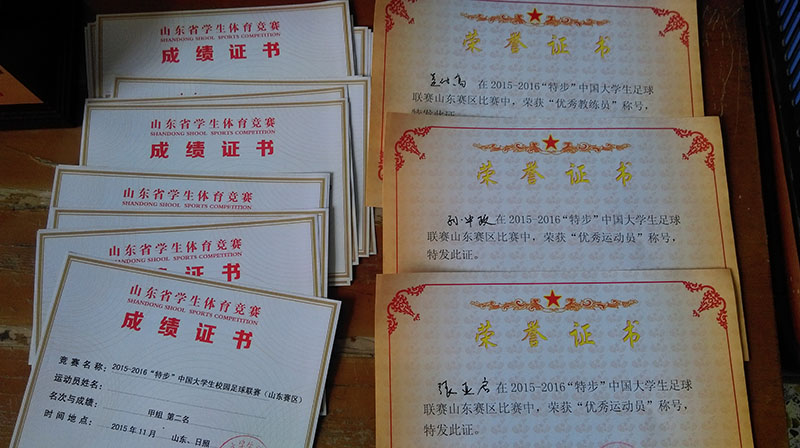 山东省学生体育竞赛
SHANDONG SHOOL SPORTS COMPETITION
成绩证书
山东省学生体育竞赛
SHANDONG SHOOL SPORTS COMPETITION
成绩证书
山东省学生体育竞赛
SHANDONG SHOOL SPORTS COMPETITION
山东省学生体育竞赛
SHANDONG SHOOL SPORTS COMPETITION
成绩证书
山东省学生体育竞赛
SHANDONG SHOOL SPORTS COMPETITION
成绩证书
竞赛名称：2015-2016“特步”中国大学生校园足球联赛（山东赛区）
运动员姓名：
名次与成绩： 甲组 第二名
时间地点： 2015年11月 山东、日照
荣誉证书
在2015-2016“特步”中国大学生足球
联赛山东赛区比赛中，荣获“优秀教练员”称号，
特发此证
荣誉证书
在2015-2016“特步”中国大学生足球
联赛山东赛区比赛中，荣获“优秀运动员”称号，
特发此证。
荣誉证书
在2015-2016“特步”中国大学生足球
联赛山东赛区比赛中，荣获“优秀运动员”称号，
特发此证。